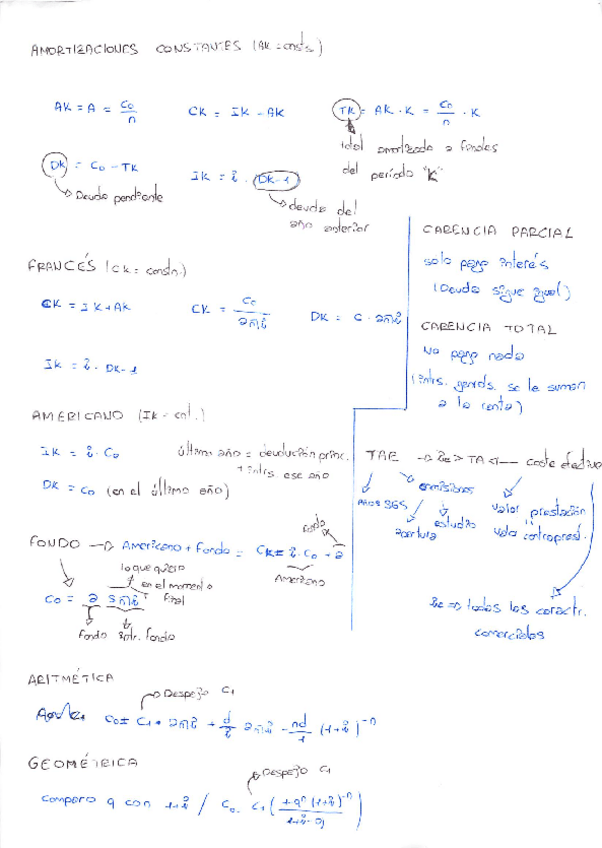 AMORTIZACIONES CONSTANTES (AK = consts)
AK = A = C0/n
CK = IK - AK
TK = AK · K = C0/n · K
total amortizado a finales
del período "K"
DK = C0 - TK
Deuda pendiente
IK = i · DK-1
deuda del
año anterior
FRANCÉS (CK = constn.)
CK = IK + AK
CK = C0/an¬i
DK = C · an¬i
IK = i · DK-1
CARENCIA PARCIAL
solo pago interés
(Deuda sigue igual)
CARENCIA TOTAL
No pago nada
(ints. gends. se le suman
a la renta)
AMERICANO (IK = cnt.)
IK = i · C0
último año = devolución princ.
+ ints. ese año
DK = C0 (en el último año)
TAE → ie > TA ← coste efectivo
comisiones
apertura
estudio
valor prestación
valo contraprest.
ie ⇒ todas las caractr.
comerciales
FONDO → Americano + Fondo = CK = i · C0 + a
Fondo
Americano
lo que quiero
en el momento
final
C0 = a sn¬i
Fondo
Intr. fondo
ARITMÉTICA
Despejo C1
C0 = C1 · an¬i + d/i an¬i - nd/i (1+i)^-n
GEOMÉTRICA
Despejo C1
Comparo q con 1+i / C0 = C1 (1-q^n (1+i)^-n / 1+i-q)